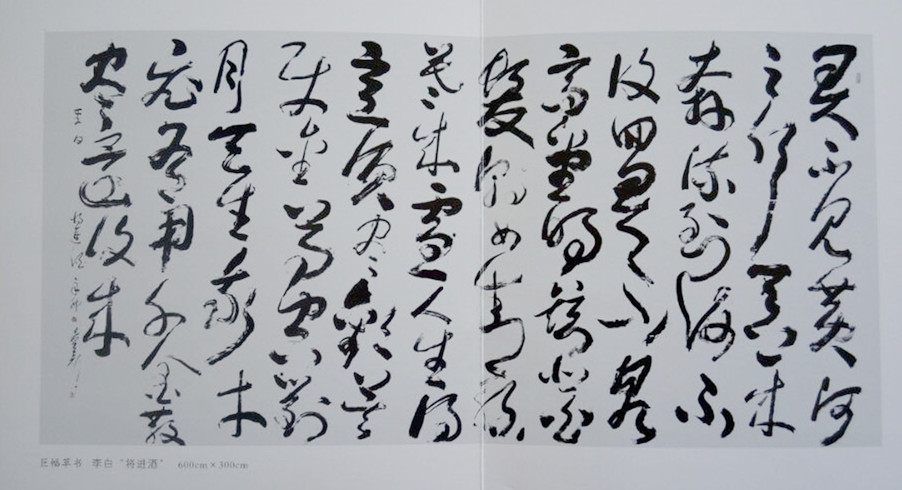 君不见黄河
之水天上来
奔流到海不
复回君不见
高堂明镜悲白
发朝如青丝
暮成雪人生得
意须尽欢莫
使金樽空对
月天生我材
必有用千金散
尽还复来
李白 将进酒
巨幅草书 李白“将进酒” 600cm×300cm